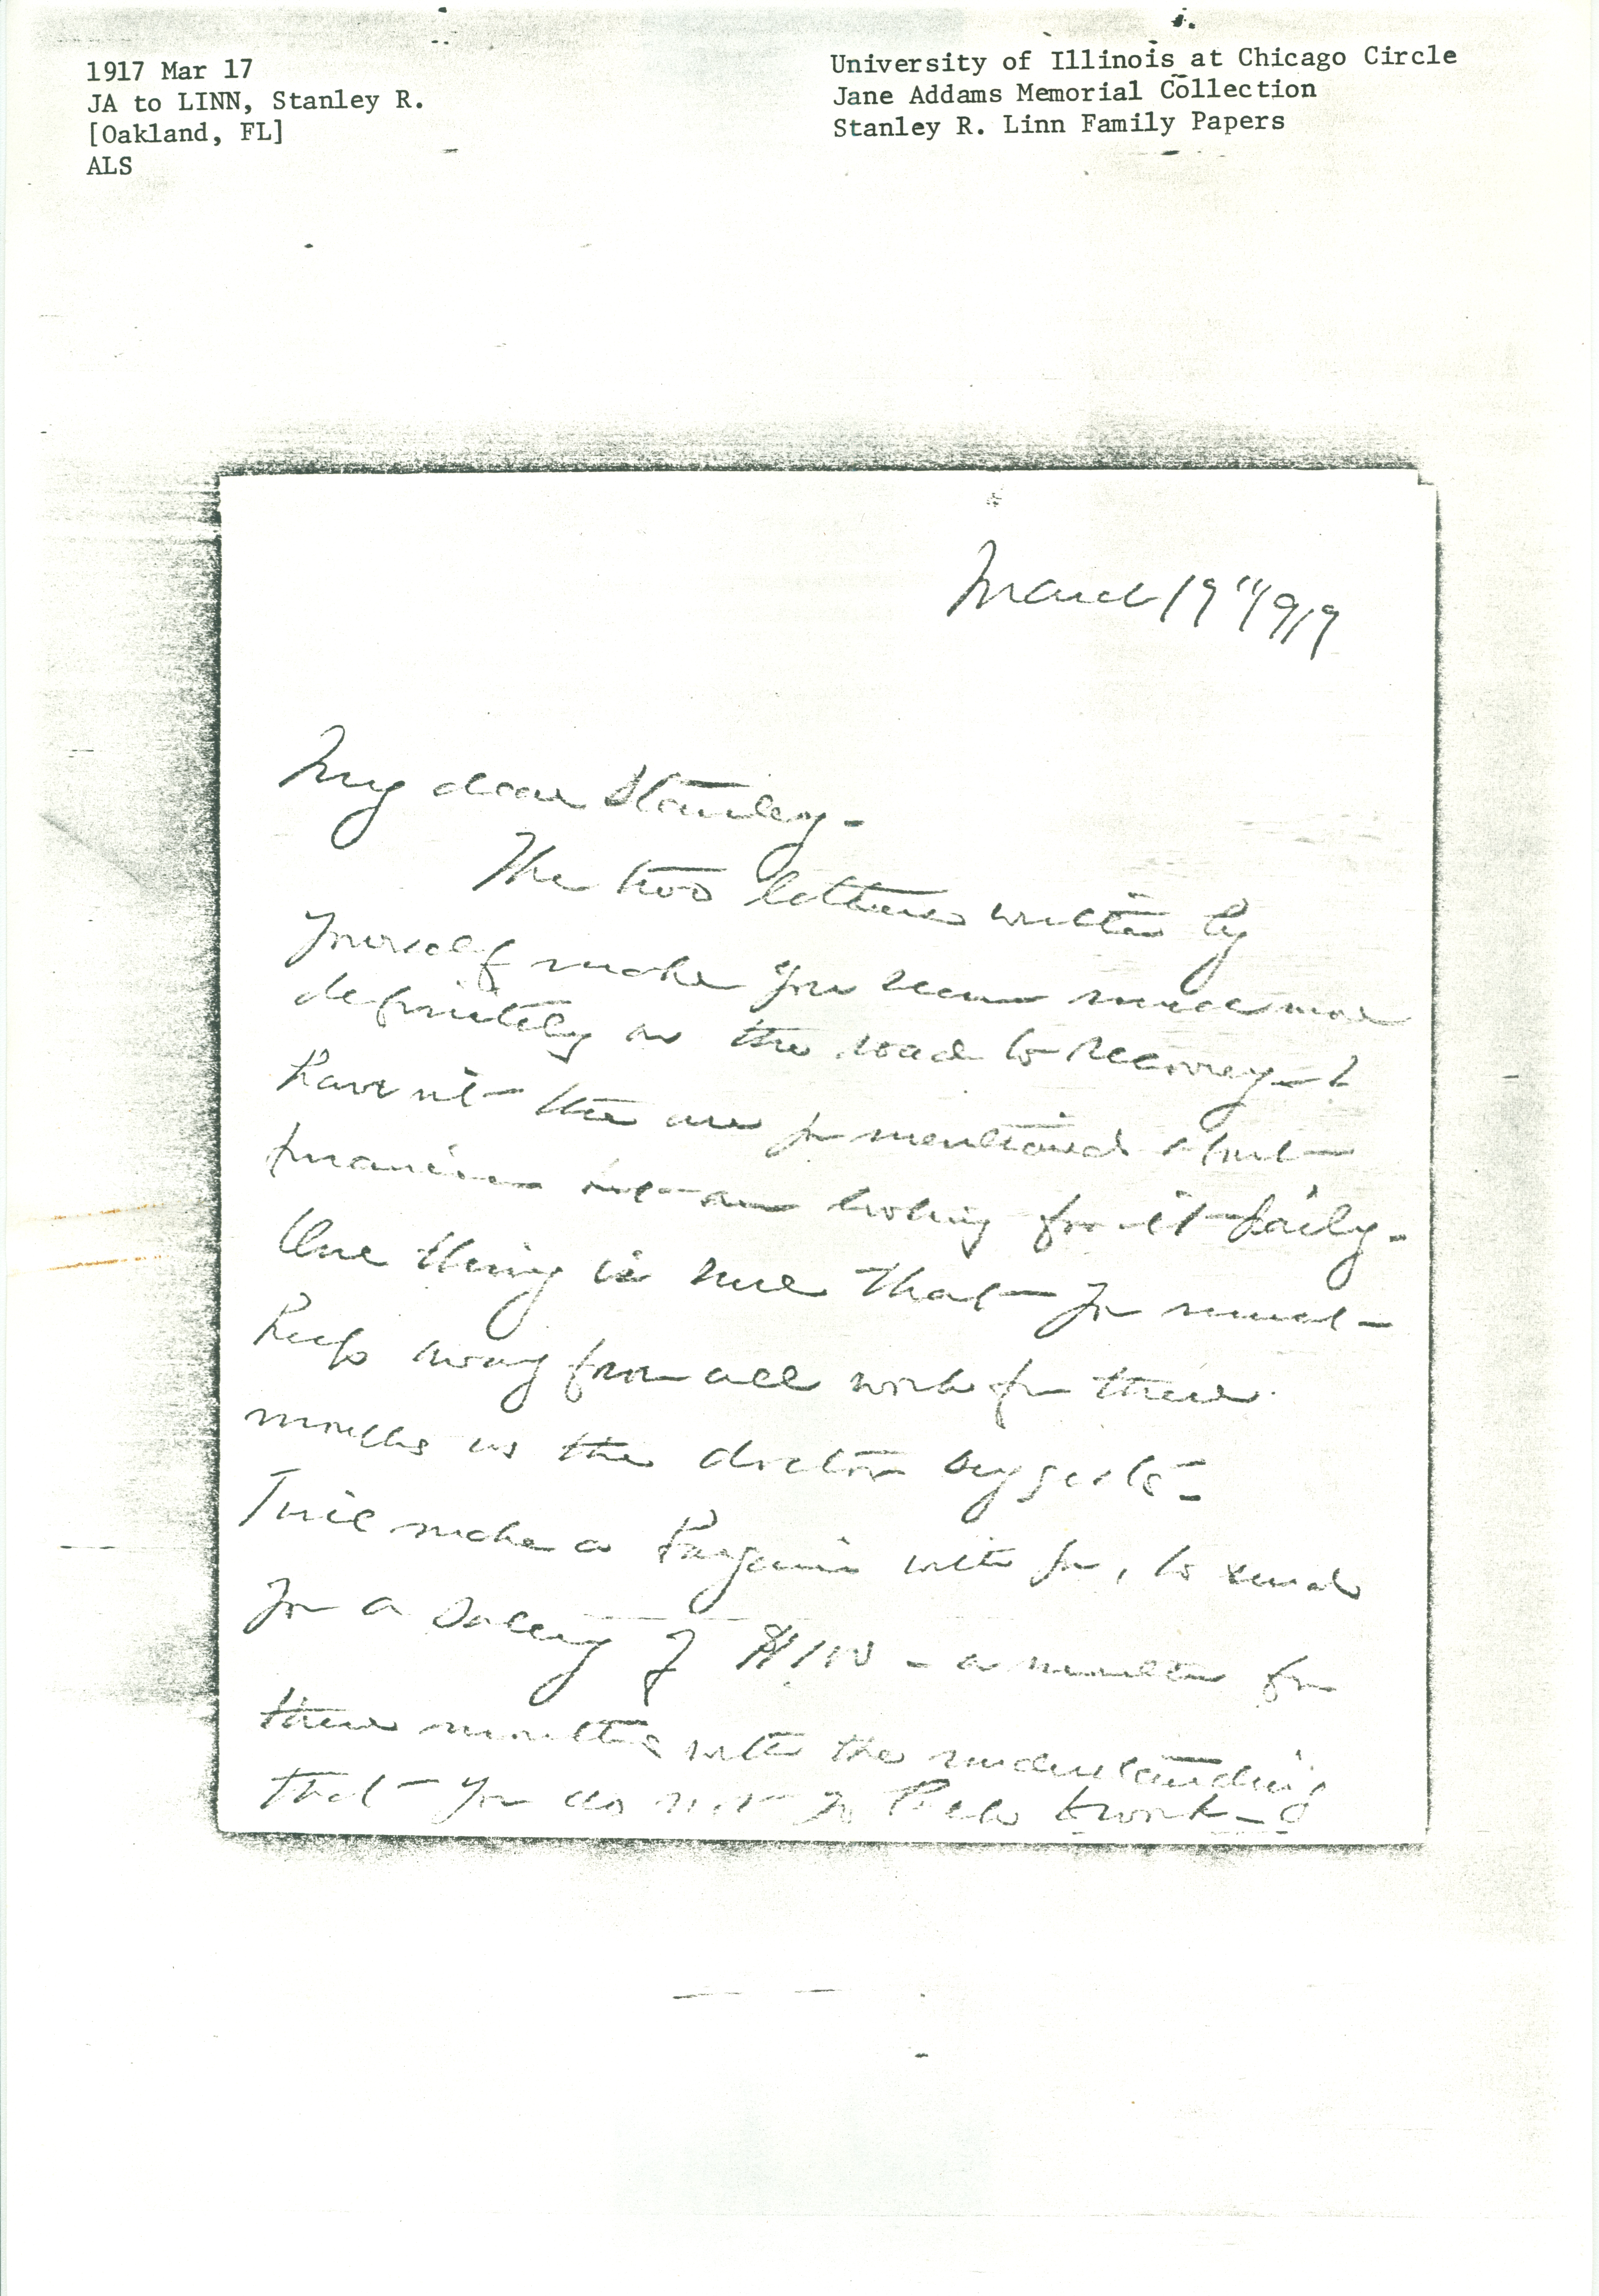 1917 Mar 17
JA to LINN, Stanley R.
[Oakland, FL]
ALS
University of Illinois at Chicago Circle
Jane Addams Memorial Collection
Stanley R. Linn Family Papers
March 17" 1917
My dear Stanley -
The two letters written by
yourself make you seem much more
definitely on the road to recovery - I
haven't the one you mentioned about
finances but am looking for it daily -
One thing is sure that you must -
keep away from all work for three
months as the doctor suggests -
I will make a bargain with you, to send
you a salary of $100 - a month for
three months with the understanding
that you do not go back to work -